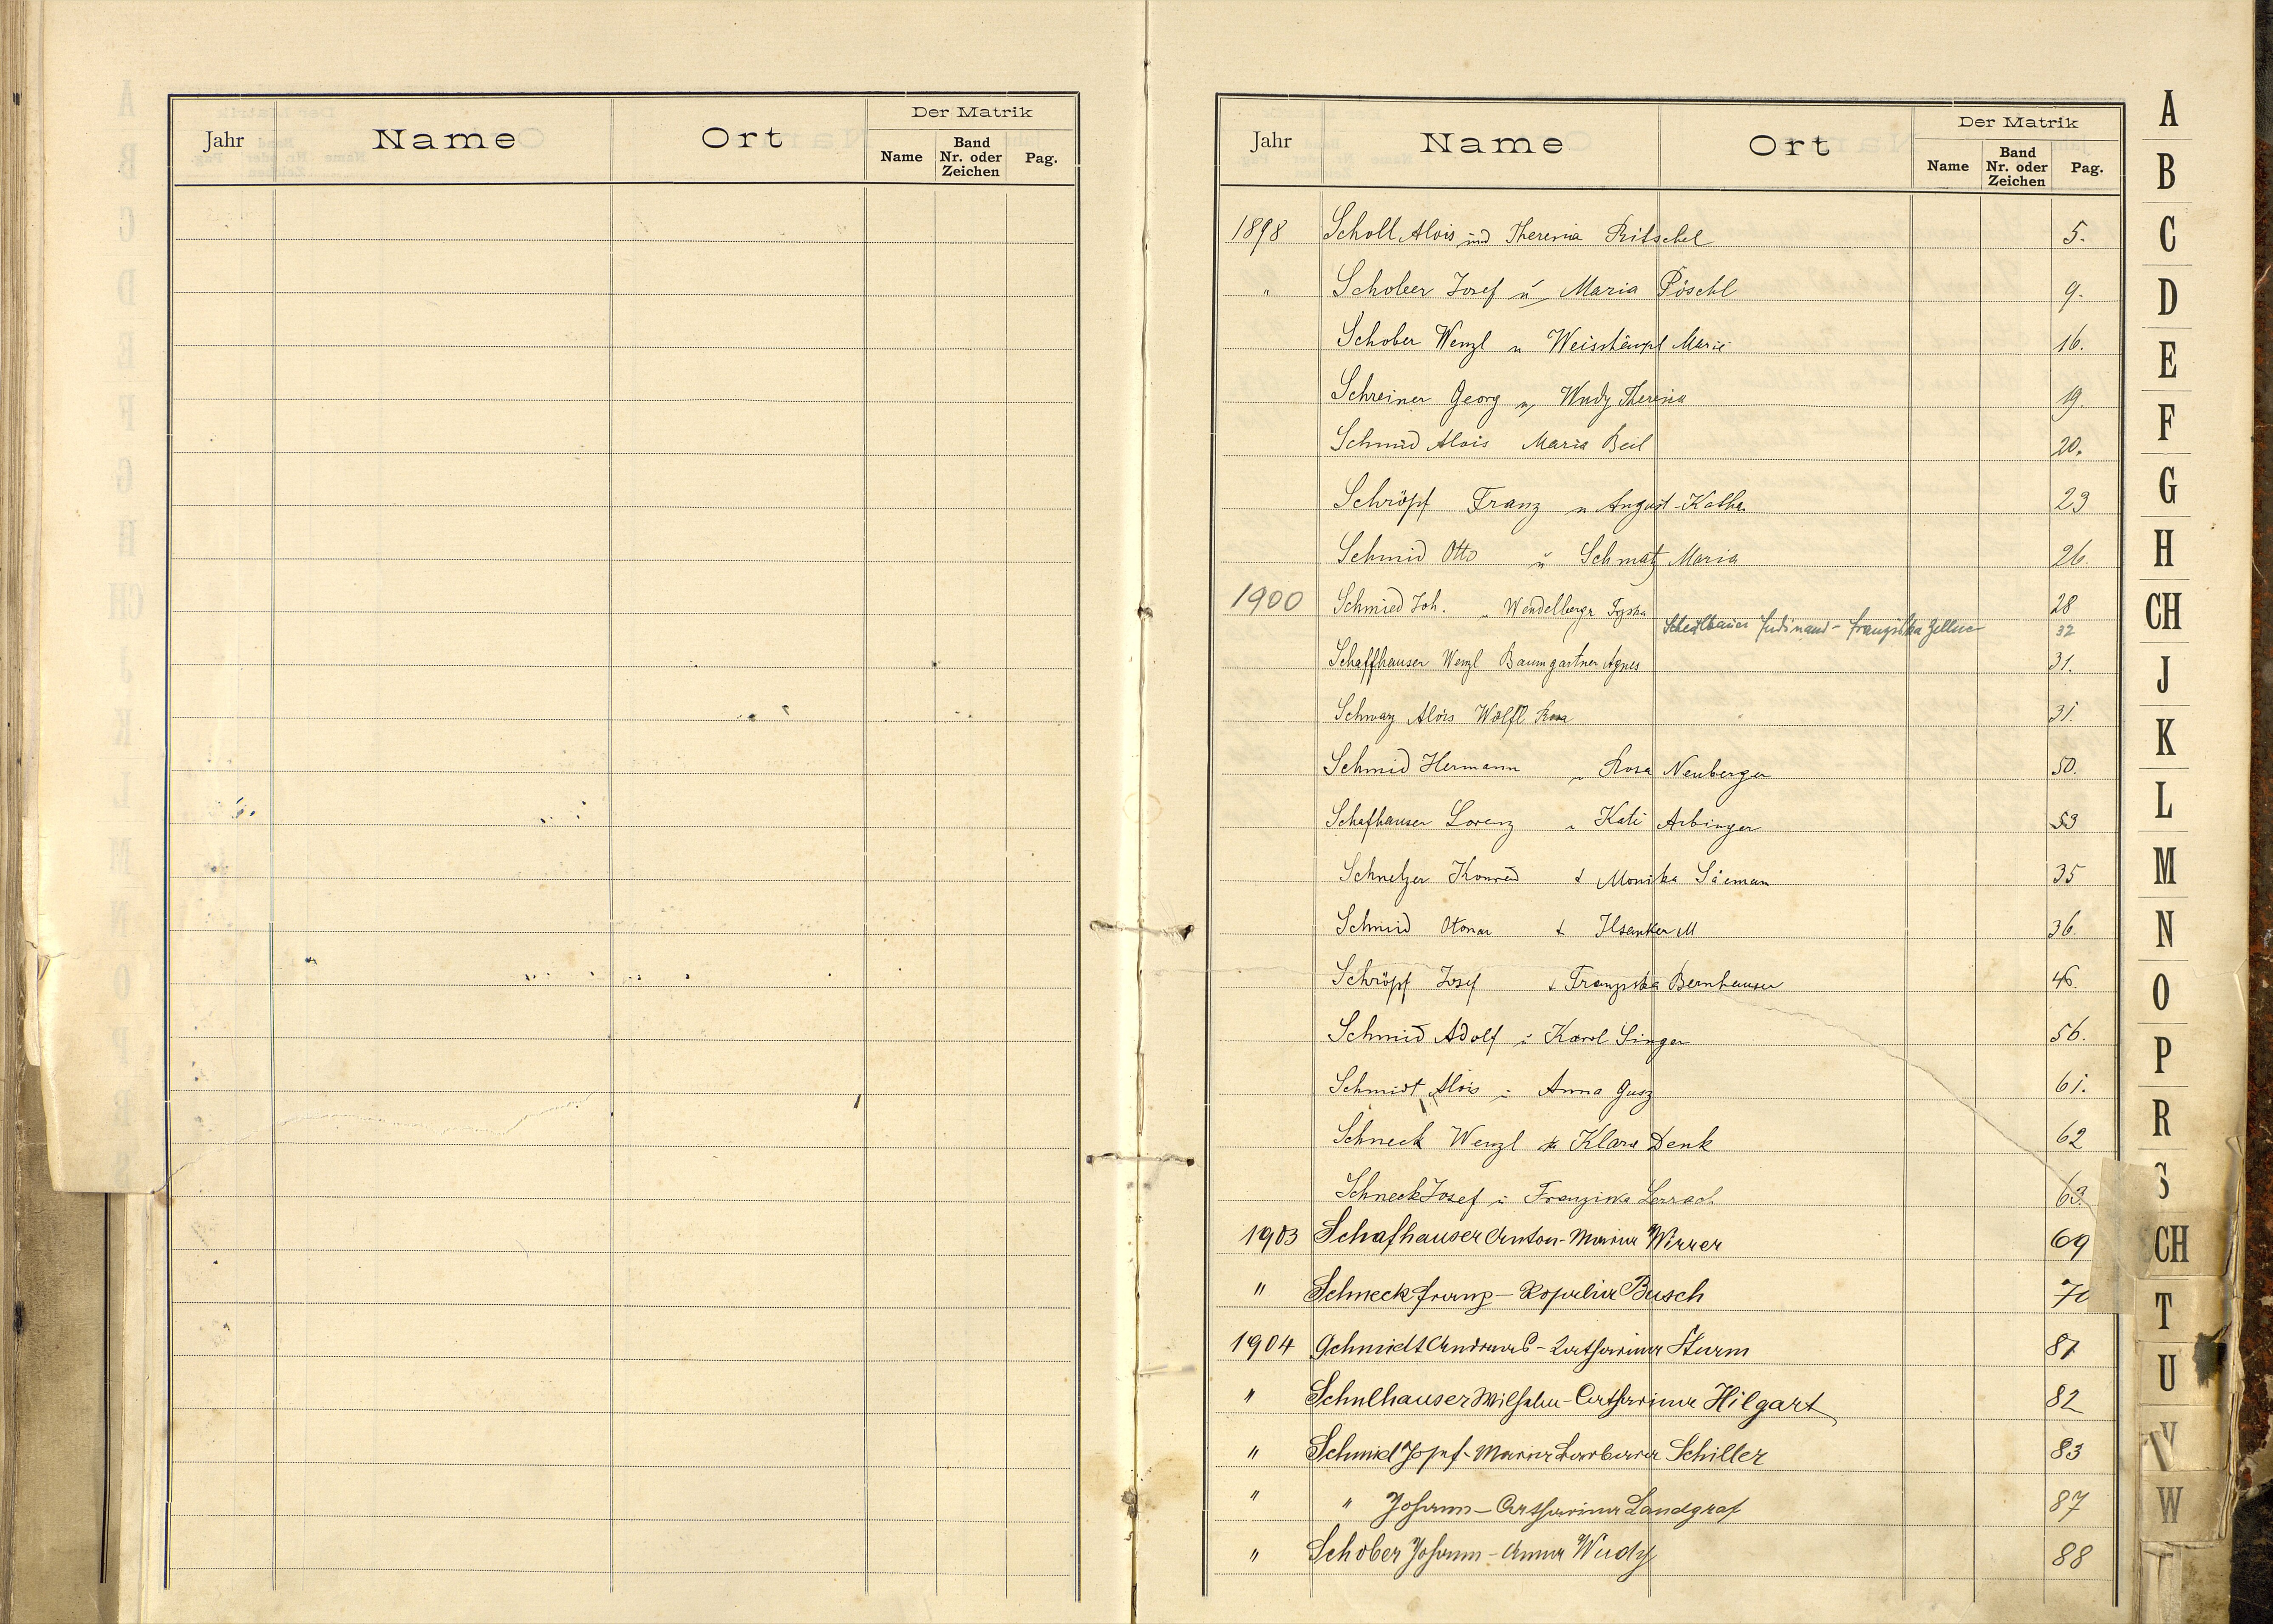 Der Matrik
Jahr Name Ort Name Band Nr. oder Zeichen Pag.
Der Matrik
Jahr Name Ort Name Band Nr. oder Zeichen Pag.
1898 Scholl Alois und Theresia Ritschel 5.
" Schober Josef u Maria Pöschl 9.
Schober Wenzl u Weishäupl Marie 16.
Schreiner Georg u Wudy Theresia 19.
Schmid Alois Maria Beil 20.
Schröpf Franz u August Katha 23
Schmid Otto u Schmatz Maria 26.
1900 Schmied Joh. " Wendelberger 28
Ferdinand - Franziska Zellner 32
Schaffhauser Wenzl Baumgartner Agnes 31.
Schwarz Alois Wölfl Rosa 31.
Schmid Hermann " Rosa Neuberger 50.
Schafhauser Lorenz " Kati Arbinger 53
Schnelzer Konrad & Monika 35
Schmid Otomar & M 36.
Schröpf Josef & Franziska Bernhauser 46.
Schmid Adolf u Karol Singer 56.
Schmidt Alois u Anna Gusz 61.
Schneck Wenzl & Klara Denk 62
Schneck Josef u Franziska 63.
1903 Schafhauser Anton - Maria Wirrer 69
" Schneck Franz - Rosalia Busch 70
1904 Schmidt Andreas - Katharina Sturm 81
" Schulhauser Wilhelm - Catharina Hilgart 82
" Schmid Josef - Maria Barbara Schiller 83
" " Johann - Catharina Landgraf 87
" Schober Johann - Anna Wudy 88
A
B
C
D
E
F
G
H
CH
J
K
L
M
N
O
P
R
S
SCH
T
U
V
W